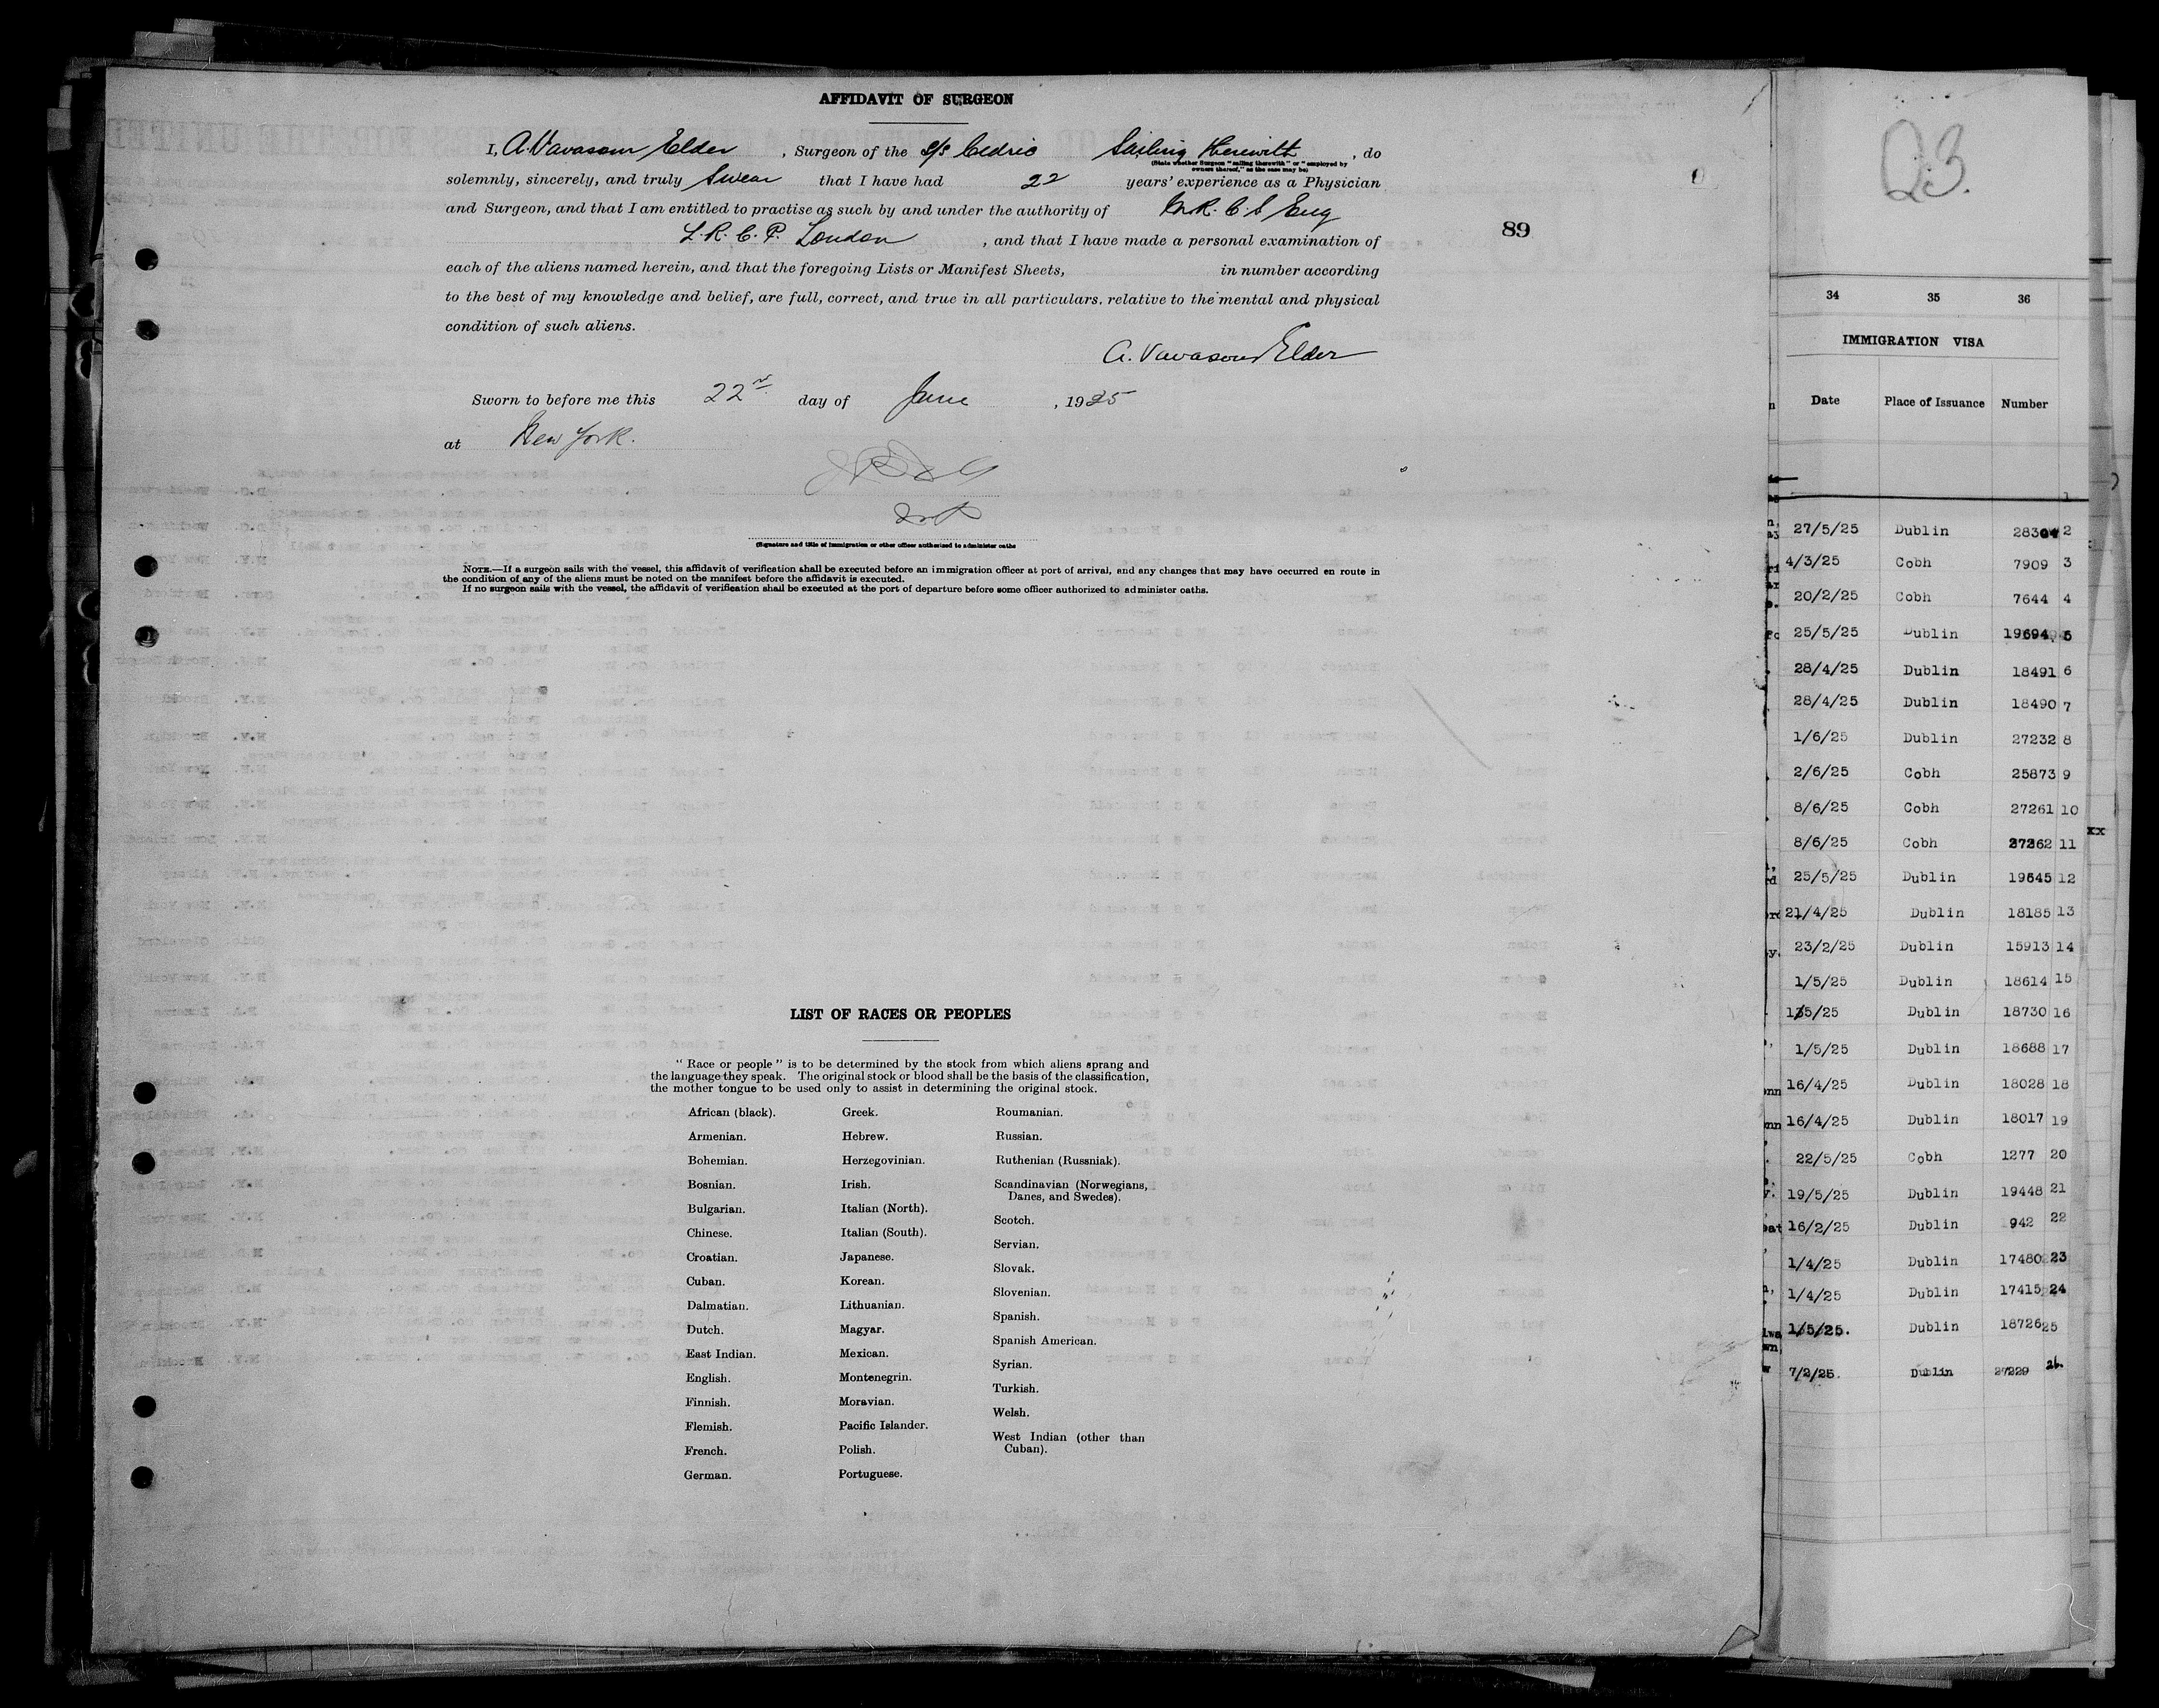 AFFIDAVIT OF SURGEON
I, A. Vavasour Elder, Surgeon of the S/S Cedric Sailing Therewith, do
(State whether Surgeon "sailing therewith" or "employed by
owners thereof," as the case may be)
solemnly, sincerely, and truly Swear that I have had 22 years' experience as a Physician
and Surgeon, and that I am entitled to practise as such by and under the authority of M.R.C.S Eng
L.R.C.P. London, and that I have made a personal examination of
each of the aliens named herein, and that the foregoing Lists or Manifest Sheets, in number according
to the best of my knowledge and belief, are full, correct, and true in all particulars, relative to the mental and physical
condition of such aliens.
A. Vavasour Elder
Sworn to before me this 22nd day of June, 1925
at New York.
(Signature and title of immigration or other officer authorized to administer oaths
NOTE.—If a surgeon sails with the vessel, this affidavit of verification shall be executed before an immigration officer at port of arrival, and any changes that may have occurred en route in
the condition of any of the aliens must be noted on the manifest before the affidavit is executed.
If no surgeon sails with the vessel, the affidavit of verification shall be executed at the port of departure before some officer authorized to administer oaths.
89
LIST OF RACES OR PEOPLES
"Race or people" is to be determined by the stock from which aliens sprang and
the language they speak. The original stock or blood shall be the basis of the classification,
the mother tongue to be used only to assist in determining the original stock.
African (black).
Armenian.
Bohemian.
Bosnian.
Bulgarian.
Chinese.
Croatian.
Cuban.
Dalmatian.
Dutch.
East Indian.
English.
Finnish.
Flemish.
French.
German.
Greek.
Hebrew.
Herzegovinian.
Irish.
Italian (North).
Italian (South).
Japanese.
Korean.
Lithuanian.
Magyar.
Mexican.
Montenegrin.
Moravian.
Pacific Islander.
Polish.
Portuguese.
Roumanian.
Russian.
Ruthenian (Russniak).
Scandinavian (Norwegians,
Danes, and Swedes).
Scotch.
Servian.
Slovak.
Slovenian.
Spanish.
Spanish American.
Syrian.
Turkish.
Welsh.
West Indian (other than
Cuban).
34 35 36
IMMIGRATION VISA
Date Place of Issuance Number
1
27/5/25 Dublin 28304 2
4/3/25 Cobh 7909 3
20/2/25 Cobh 7644 4
25/5/25 Dublin 19694 5
28/4/25 Dublin 18491 6
28/4/25 Dublin 18490 7
1/6/25 Dublin 27232 8
2/6/25 Cobh 25873 9
8/6/25 Cobh 27261 10
8/6/25 Cobh 27262 11
xx
25/5/25 Dublin 19645 12
21/4/25 Dublin 18185 13
23/2/25 Dublin 15913 14
1/5/25 Dublin 18614 15
Dublin 18730 16
1/5/25 Dublin 18688 17
16/4/25 Dublin 18028 18
16/4/25 Dublin 18017 19
22/5/25 Cobh 1277 20
19/5/25 Dublin 19448 21
16/2/25 Dublin 942 22
1/4/25 Dublin 17480 23
1/4/25 Dublin 17415 24
1/5/25. Dublin 18726 25
7/2/25. Dublin 27229 26